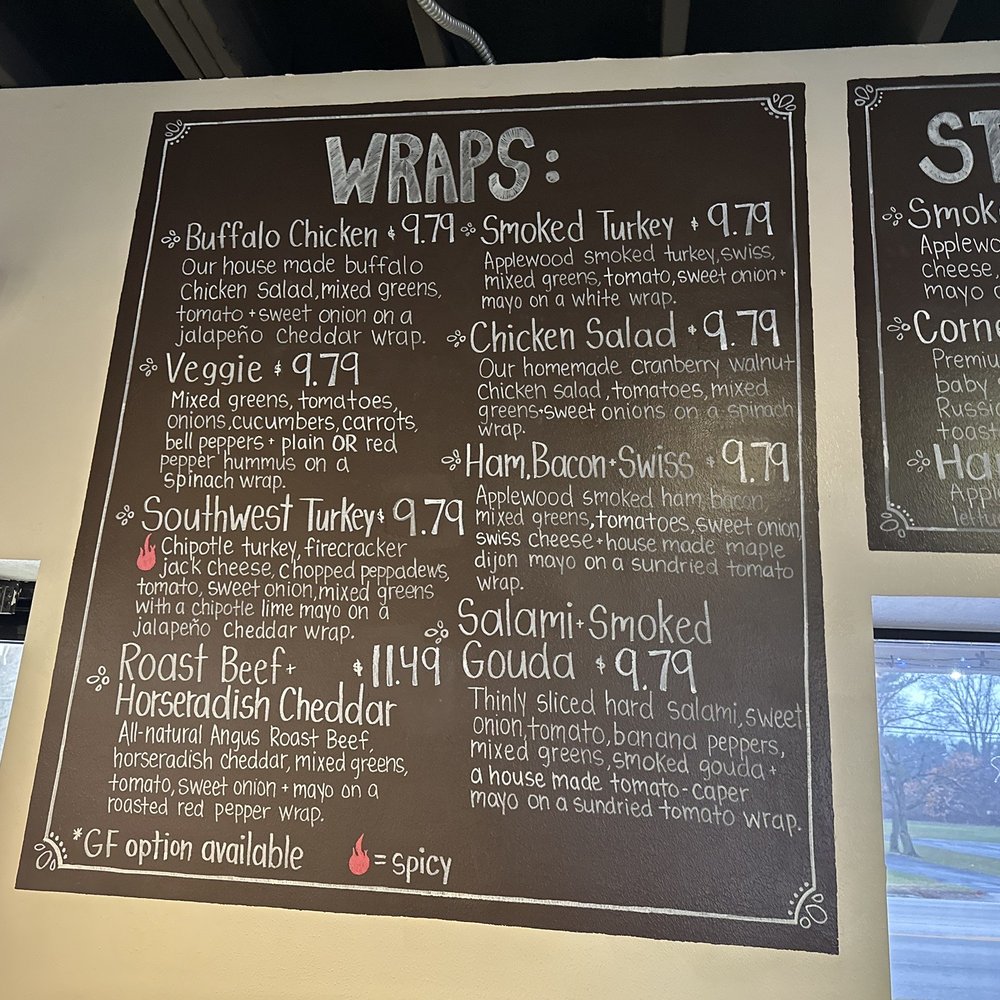 WRAPS:
Buffalo Chicken $9.79
Our house made buffalo
Chicken Salad, mixed greens,
tomato + sweet onion on a
jalapeño Cheddar wrap.
Veggie $9.79
Mixed greens, tomatoes,
onions, cucumbers, carrots,
bell peppers + plain OR red
pepper hummus on a
spinach wrap.
Southwest Turkey $9.79
Chipotle turkey, firecracker
jack cheese, chopped peppadews,
tomato, sweet onion, mixed greens
with a chipotle lime mayo on a
jalapeño Cheddar wrap.
Roast Beef + $11.49
Horseradish Cheddar
All-natural Angus Roast Beef,
horseradish cheddar, mixed greens,
tomato, sweet onion + mayo on a
roasted red pepper wrap.
*GF option available
= spicy
Smoked Turkey $9.79
Applewood smoked turkey, swiss,
mixed greens, tomato, sweet onion +
mayo on a white wrap.
Chicken Salad $9.79
Our homemade cranberry walnut
Chicken salad, tomatoes, mixed
greens + sweet onions on a spinach
wrap.
Ham, Bacon + Swiss $9.79
Applewood smoked ham, bacon,
mixed greens, tomatoes, sweet onion,
swiss cheese + house made maple
dijon mayo on a sundried tomato
wrap.
Salami + Smoked
Gouda $9.79
Thinly sliced hard salami, sweet
onion, tomato, banana peppers,
mixed greens, smoked gouda +
a house made tomato-caper
mayo on a sundried tomato wrap.
ST
Smok
Applewo
cheese,
mayo o
Corne
Premiu
baby
Russia
toast
Ha
Appl
lettu